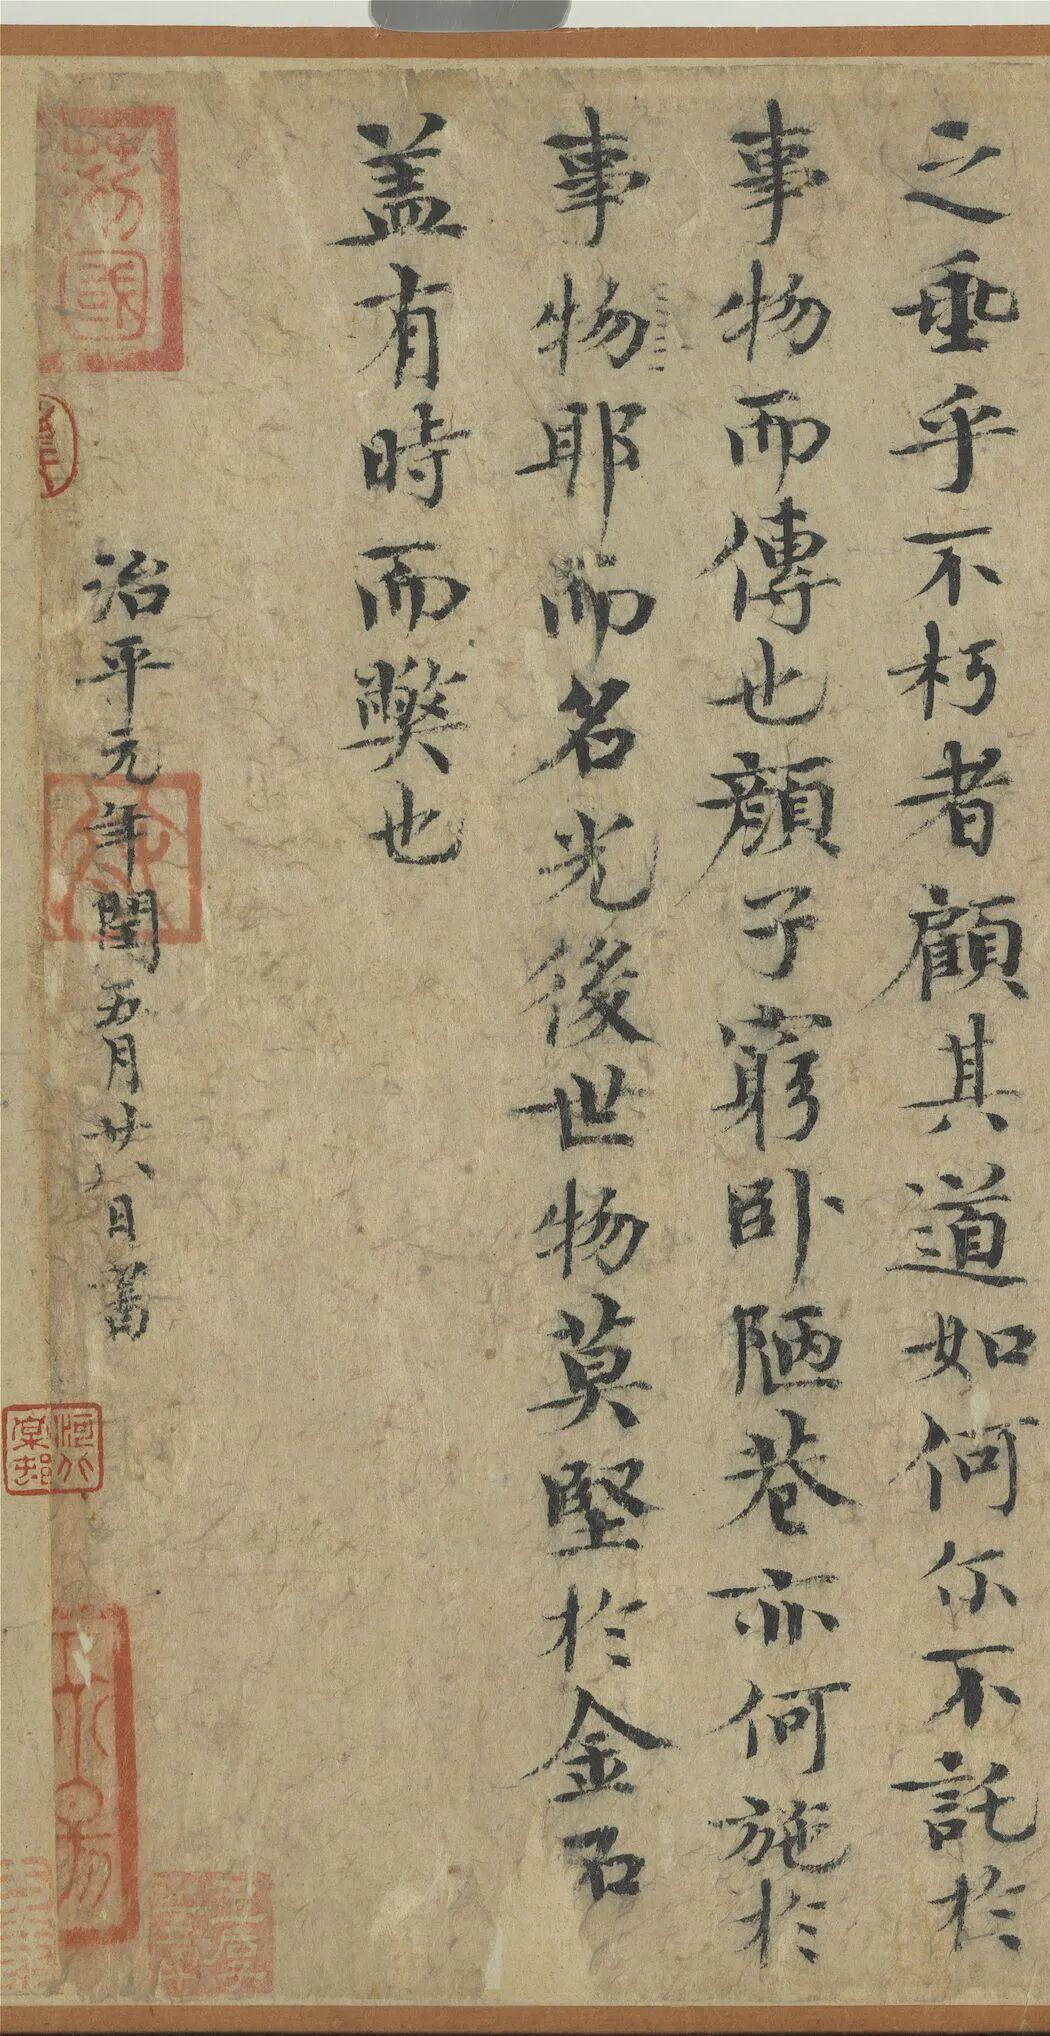 之垂乎不朽者顧其道如何尔不託於
事物而傳也顔子窮卧陋巷亦何施於
事物耶而名光後世物莫堅於金石
盖有時而弊也
治平元年閏五月廿八日書